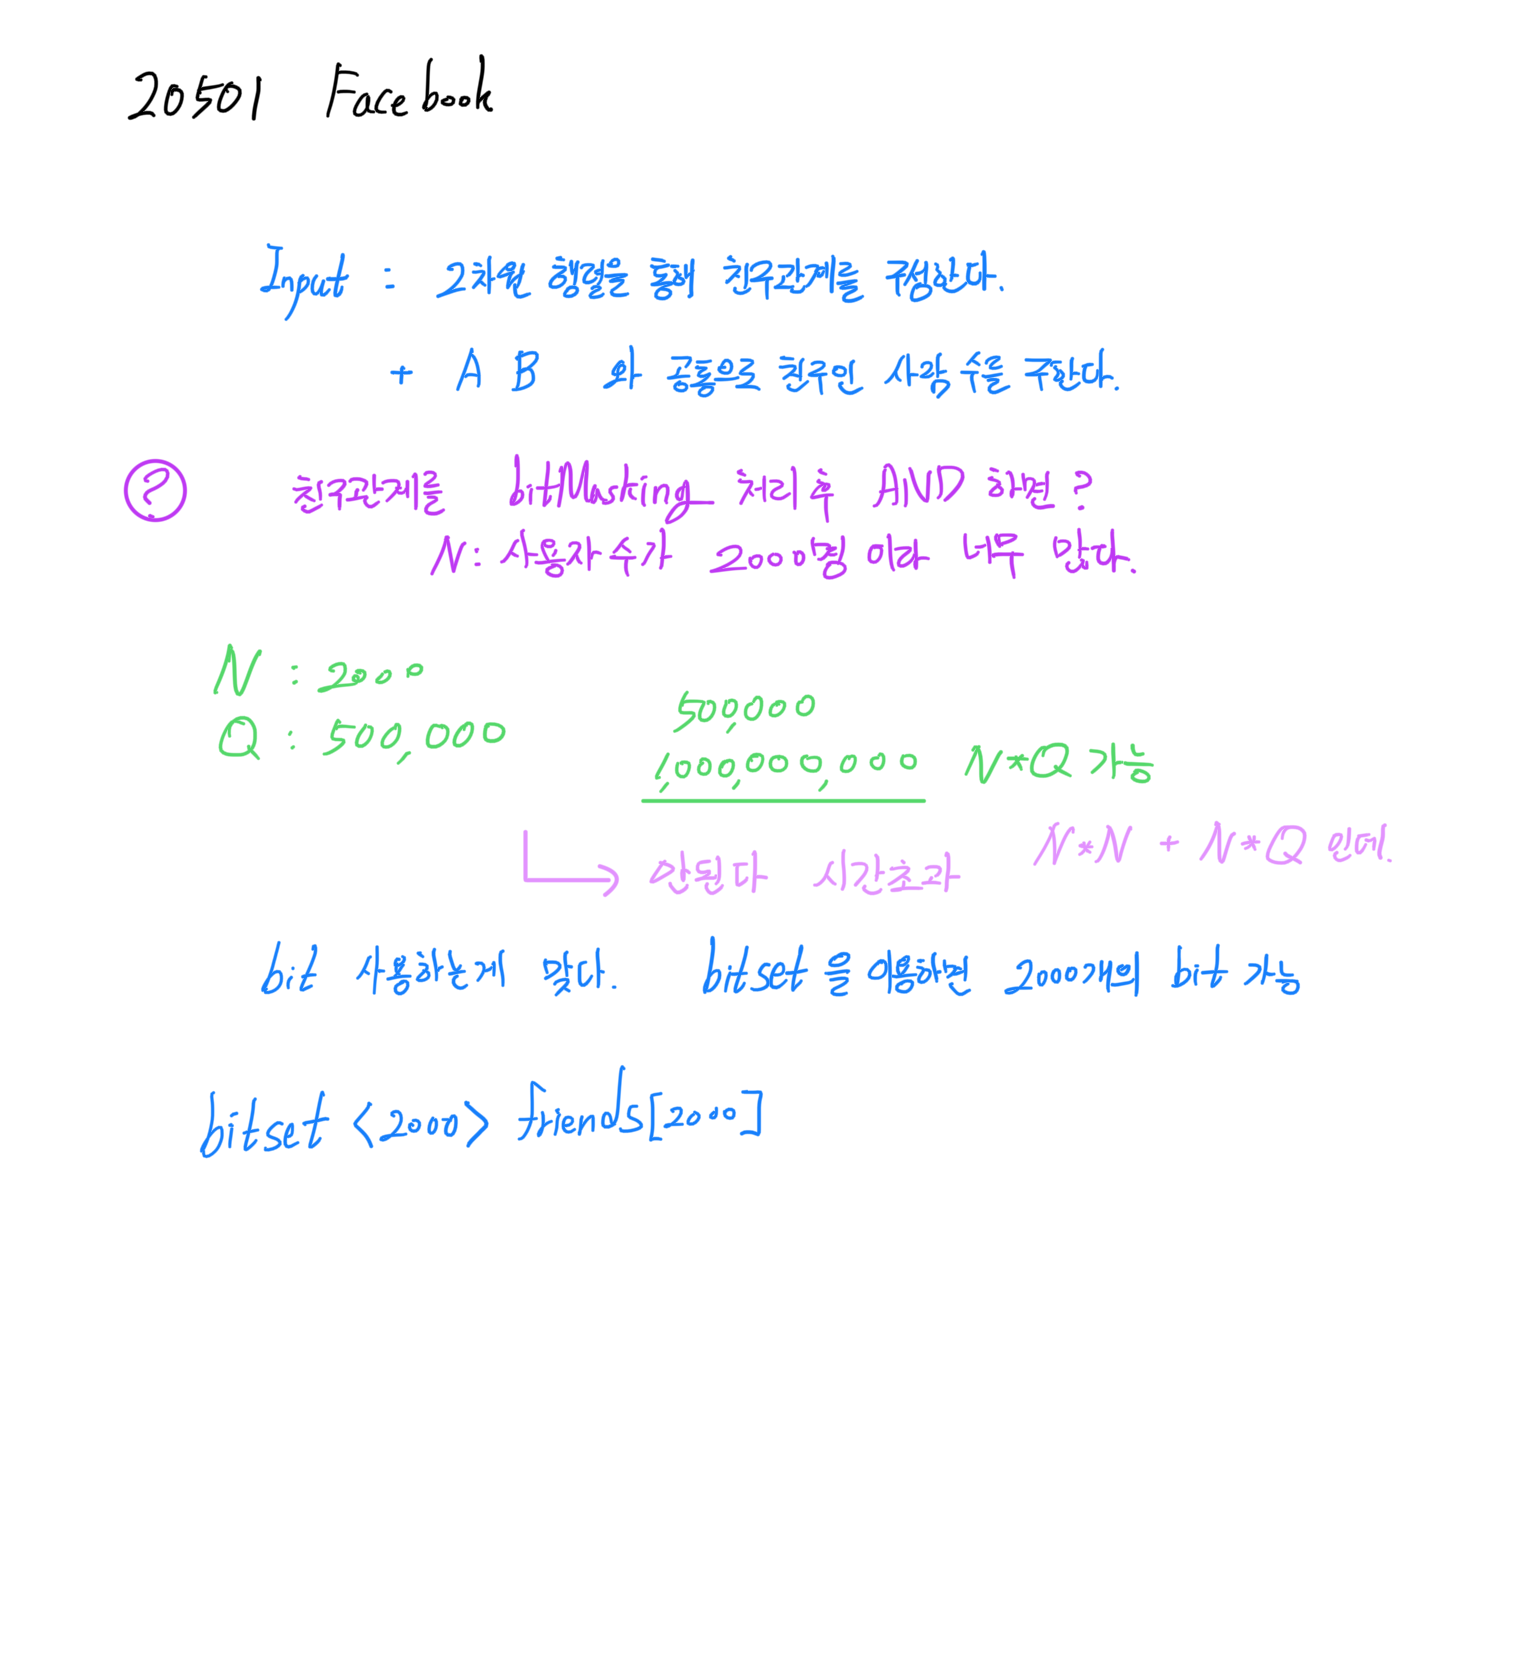 20501 Facebook
Input : 2차원 행렬을 통해 친구관계를 구성한다.
+ A B 와 공통으로 친구인 사람 수를 구한다.
? 친구관계를 bitMasking 처리 후 AND 하면?
N : 사용자 수가 2000명 이라 너무 많다.
N : 2000
Q : 500,000
500,000
1,000,000,000 N*Q 가능
N*N + N*Q 인데.
안된다 시간초과
bit 사용하는게 맞다. bitset 을 이용하면 2000개의 bit 가능
bitset <2000> friends[2000]